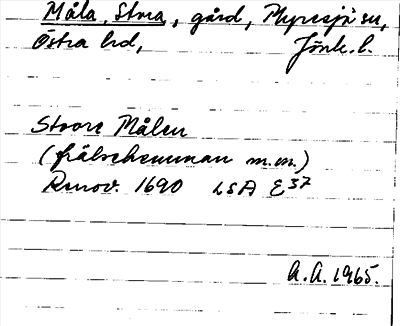 Måla, Stora, gård, Myresjö sn,
Östra hd, Jönk. l.
Stoore Målen
(frälsehemman m.m.)
Renov. 1690 LSA E 37
A.A. 1965.